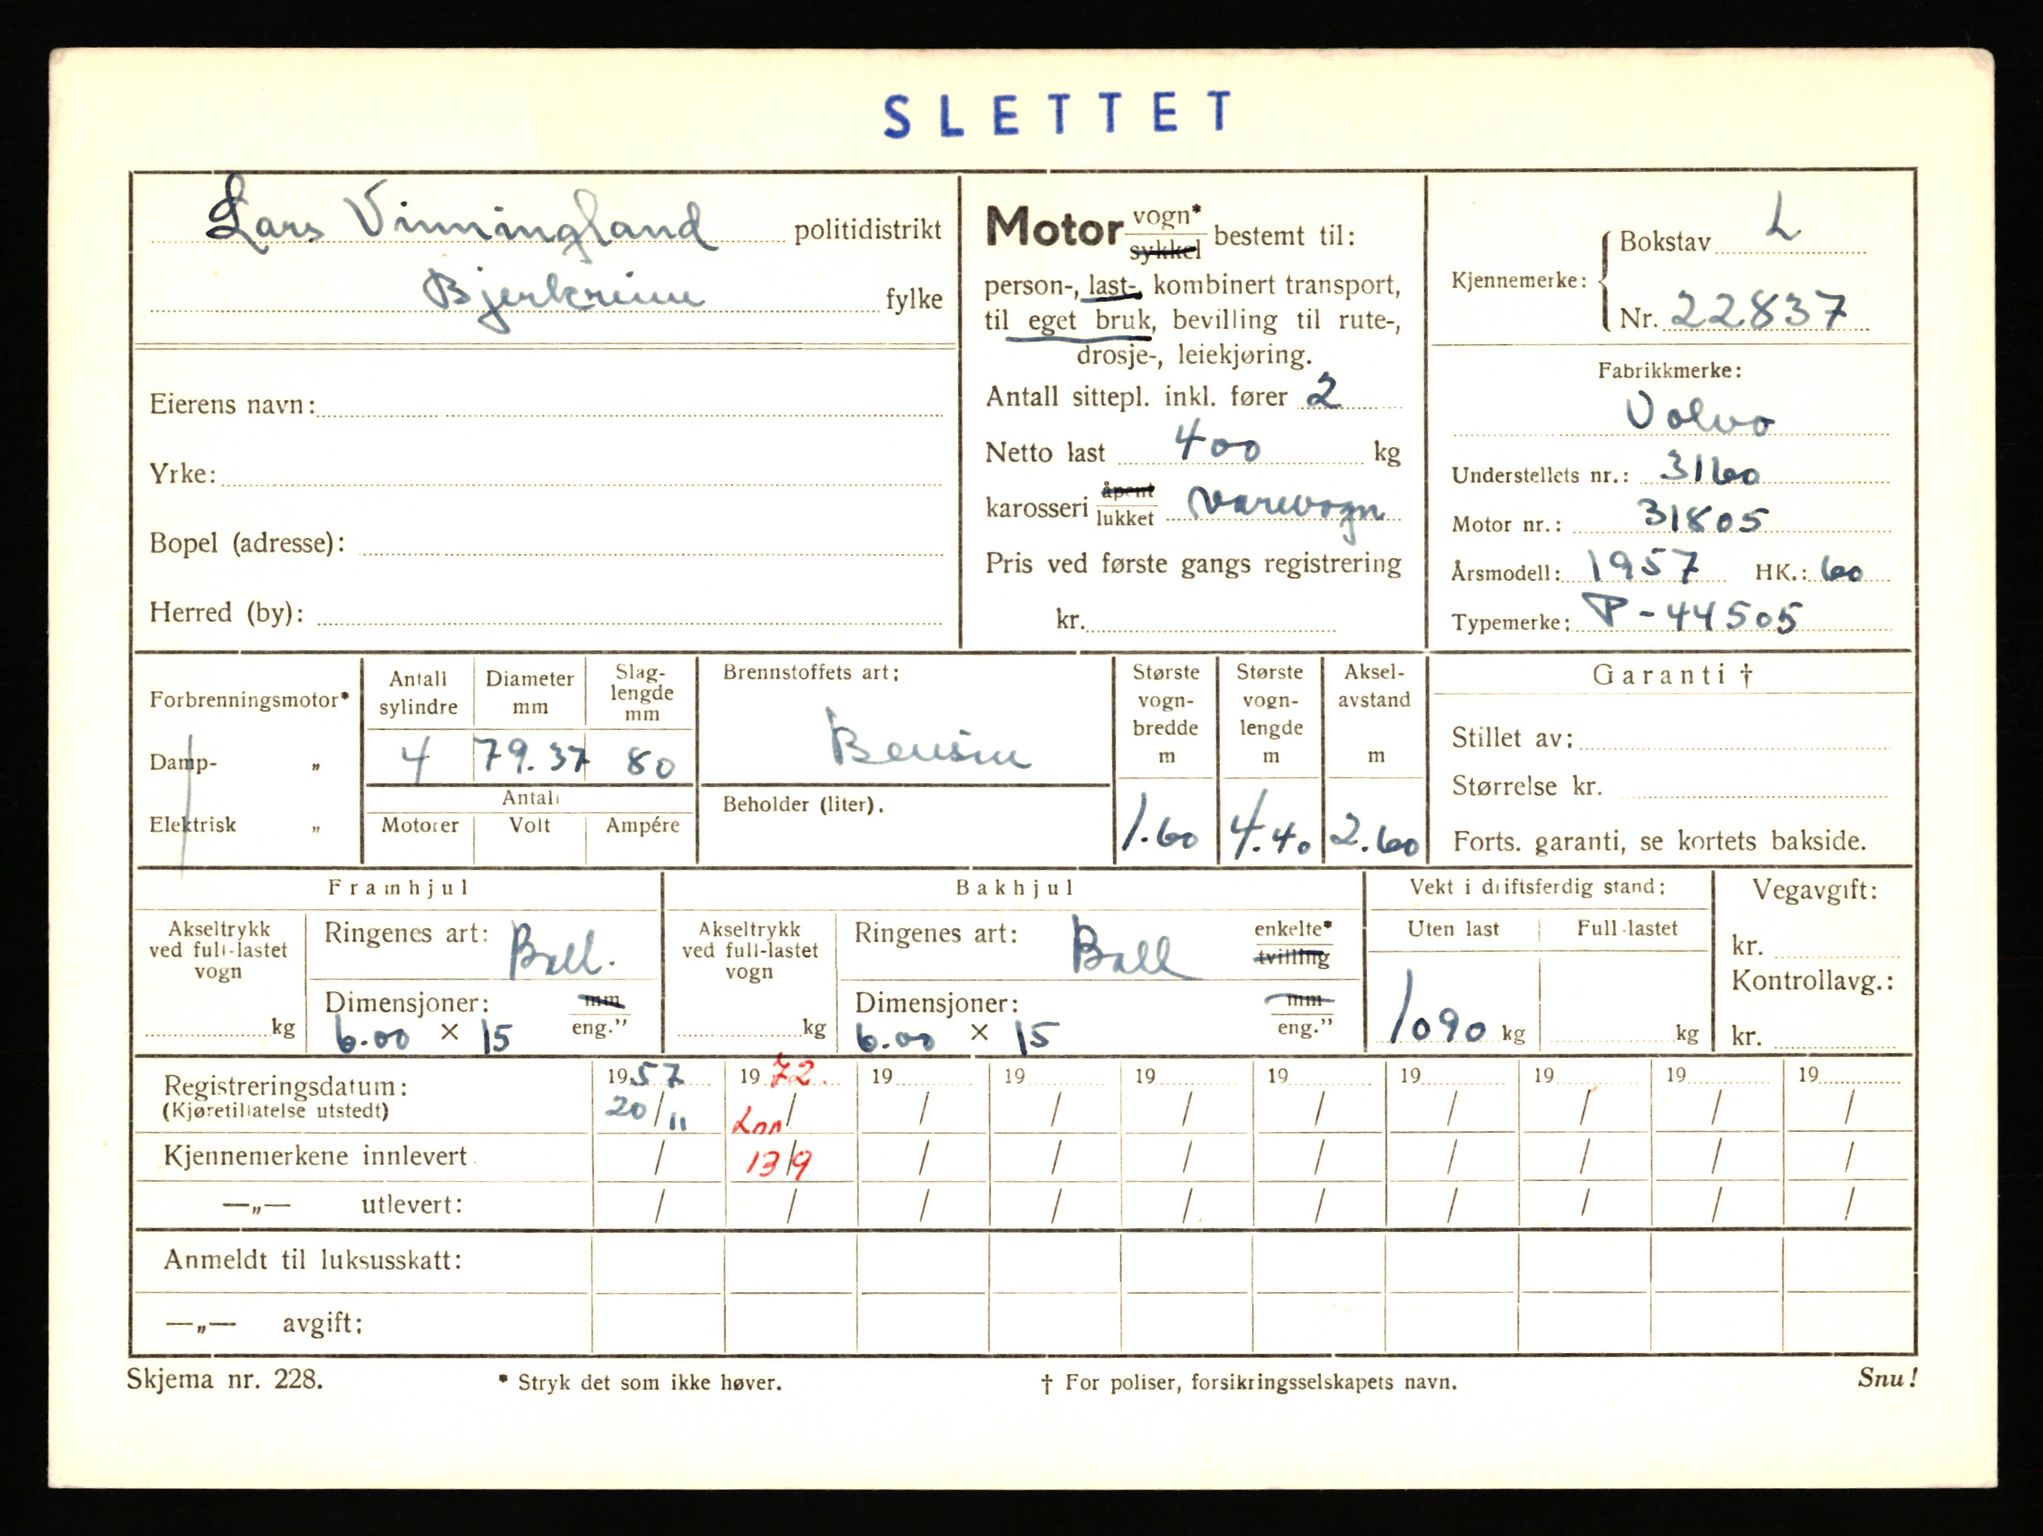 SLETTET
Lars Vinningland politidistrikt
Bjerkreim fylke
Eierens navn:
Yrke:
Bopel (adresse):
Herred (by):
Motor vogn* sykkel bestemt til:
person-, last-, kombinert transport,
til eget bruk, bevilling til rute-,
drosje-, leiekjøring.
Antall sittepl. inkl. fører 2
Netto last 400 kg
karosseri åpent lukket varevogn
Pris ved første gangs registrering
kr.
Kjennemerke: Bokstav L
Nr. 22837
Fabrikkmerke:
Volvo
Understellets nr.: 3160
Motor nr.: 31805
Årsmodell: 1957 HK.: 60
Typemerke: P-44505
Forbrenningsmotor*
Damp- „
Elektrisk „
Antall sylindre
4
Diameter mm
79.37
Slag-
lengde
mm
80
Antall
Motorer Volt Ampére
Brennstoffets art:
Bensin
Beholder (liter).
Største
vogn-
bredde
m
1.60
Største
vogn-
lengde
m
4.40
Aksel-
avstand
m
2.60
Garanti †
Stillet av:
Størrelse kr.
Forts. garanti, se kortets bakside.
Framhjul
Akseltrykk
ved full-lastet
vogn
kg
Ringenes art: Ball.
Dimensjoner: mm
6.00 × 15 eng.”
Bakhjul
Akseltrykk
ved full-lastet
vogn
kg
Ringenes art: Ball enkelte* tvilling
Dimensjoner: mm
6.00 × 15 eng.”
Vekt i driftsferdig stand:
Uten last Full-lastet
1090 kg kg
Vegavgift:
kr.
Kontrollavg.:
kr.
Registreringsdatum: 1957 1972 19 19 19 19 19 19 19 19
(Kjøretillatelse utstedt) 20/11 / / / / / / / / /
Kjennemerkene innlevert / 13/9 / / / / / / / /
—„— utlevert: / / / / / / / / / /
Anmeldt til luksusskatt:
—„— avgift:
Skjema nr. 228. * Stryk det som ikke høver. † For poliser, forsikringsselskapets navn. Snu!